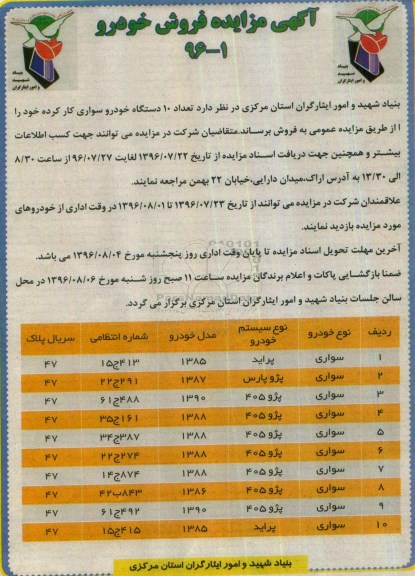 آگهی مزایده فروش خودرو
۹۶-۱
بنیاد
شهید
و امور ایثارگران
بنیاد
شهید
و امور ایثارگران
بنیاد شهید و امور ایثارگران استان مرکزی در نظر دارد تعداد ۱۰ دستگاه خودرو سواری کار کرده خود را
ا از طریق مزایده عمومی به فروش برساند.متقاضیان شرکت در مزایده می توانند جهت کسب اطلاعات
بیشتر و همچنین جهت دریافت اسناد مزایده از تاریخ ۱۳۹۶/۰۷/۲۲ لغایت ۹۶/۰۷/۲۷ از ساعت ۸/۳۰
الی ۱۳/۳۰ به آدرس اراک،میدان دارایی،خیابان ۲۲ بهمن مراجعه نمایند.
علاقمندان شرکت در مزایده می توانند از تاریخ ۱۳۹۶/۰۷/۲۳ تا ۱۳۹۶/۰۸/۰۱ در وقت اداری از خودروهای
مورد مزایده بازدید نمایند.
آخرین مهلت تحویل اسناد مزایده تا پایان وقت اداری روز پنجشنبه مورخ ۱۳۹۶/۰۸/۰۴ می باشد.
ضمنا بازگشایی پاکات و اعلام برندگان مزایده ساعت ۱۱ صبح روز شنبه مورخ ۱۳۹۶/۰۸/۰۶ در محل
سالن جلسات بنیاد شهید و امور ایثارگران استان مرکزی برگزار می گردد.
ردیف نوع خودرو نوع سیستم خودرو مدل خودرو شماره انتظامی سریال پلاک
۱ سواری پراید ۱۳۸۵ ۴۱۳ج۱۵ ۴۷
۲ سواری پژو پارس ۱۳۸۷ ۲۹۱ج۲۲ ۴۷
۳ سواری پژو ۴۰۵ ۱۳۹۰ ۴۸۸ج۶۱ ۴۷
۴ سواری پژو ۴۰۵ ۱۳۸۸ ۱۶۱ج۳۵ ۴۷
۵ سواری پژو ۴۰۵ ۱۳۸۸ ۳۸۷ج۳۴ ۴۷
۶ سواری پژو ۴۰۵ ۱۳۸۸ ۲۷۴ج۲۲ ۴۷
۷ سواری پژو ۴۰۵ ۱۳۸۸ ۸۷۴ج۱۴ ۴۷
۸ سواری پژو ۴۰۵ ۱۳۸۶ ۸۴۳ب۴۲ ۴۷
۹ سواری پژو ۴۰۵ ۱۳۹۰ ۴۹۲ج۶۱ ۴۷
۱۰ سواری پراید ۱۳۸۵ ۴۱۵ج۱۵ ۴۷
بنیاد شهید و امور ایثارگران استان مرکزی